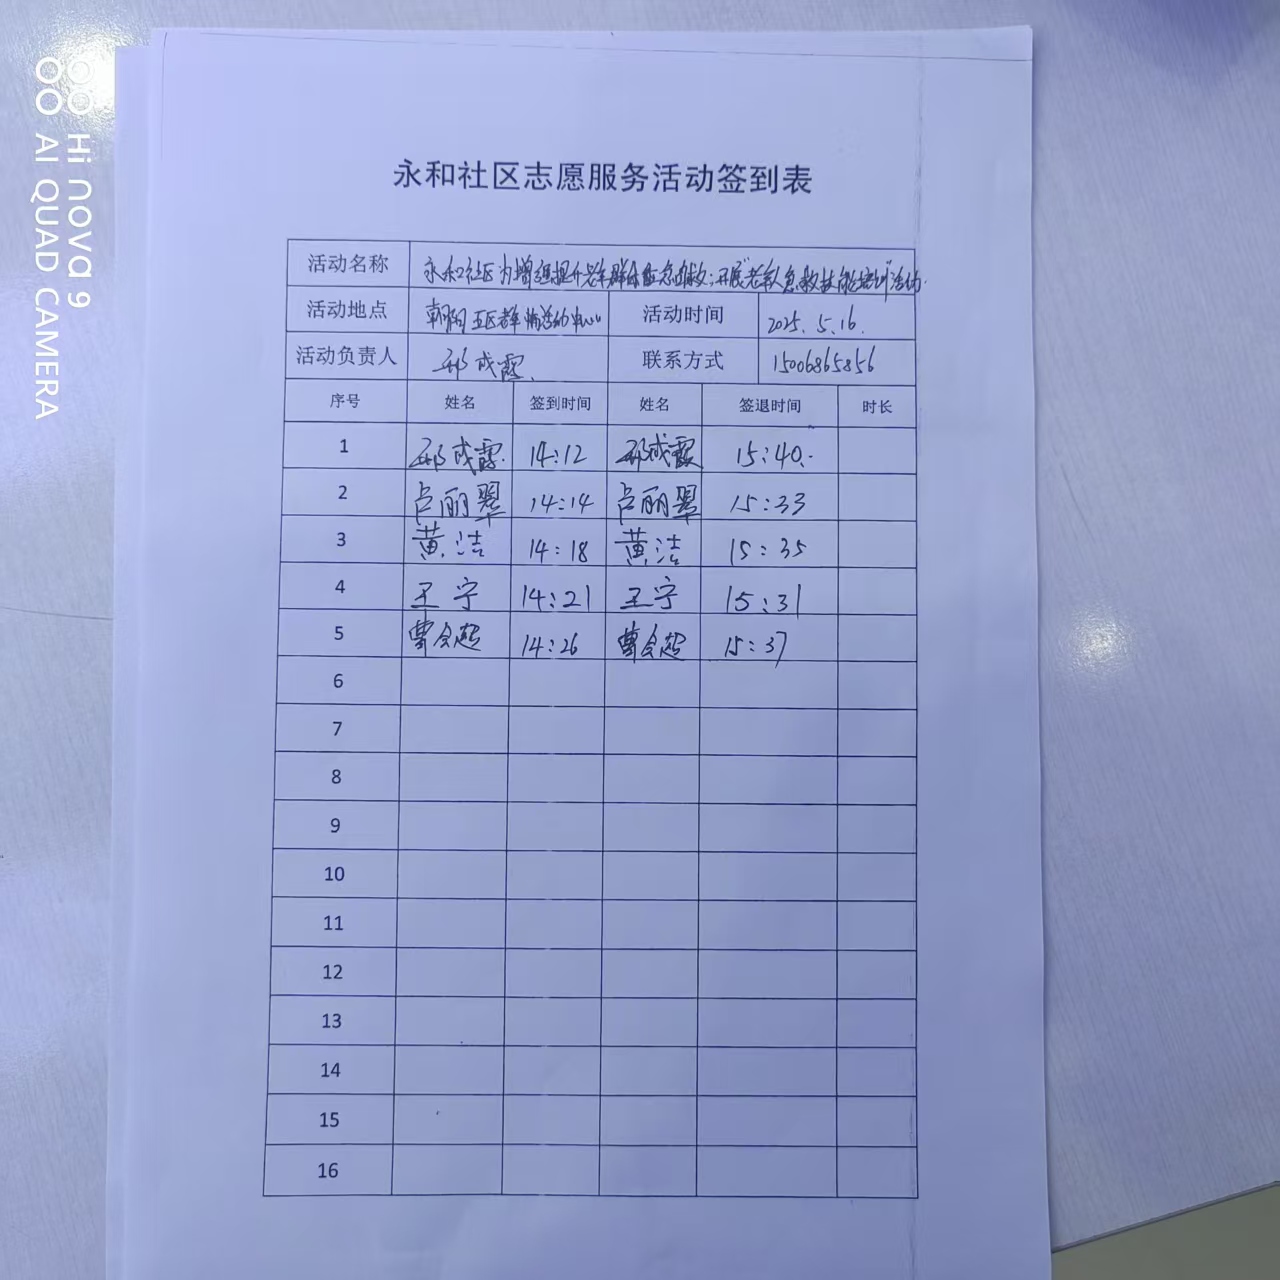 Hi nova 9
AI QUAD CAMERA
永和社区志愿服务活动签到表
活动名称 永和社区为增强提升老年群体应急自救；开展"老年人急救技能培训"活动.
活动地点 朝阳五区群情活动中心 活动时间 2025.5.16.
活动负责人 邢成霞 联系方式 15006865856
序号 姓名 签到时间 姓名 签退时间 时长
1 邢成霞 14:12 邢成霞 15:40
2 卢丽翠 14:14 卢丽翠 15:33
3 黄洁 14:18 黄洁 15:35
4 王宁 14:21 王宁 15:31
5 曹会超 14:26 曹会超 15:37
6
7
8
9
10
11
12
13
14
15
16